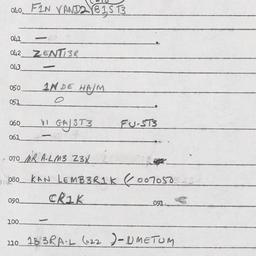 040 FIN VAND2YB1ST3
041 —
042 ZENTI3R
043 —
050 IN DE HAJM
051 0
060 VI GAJST3 FU-ST3
061 —
070 MR A-LM3 Z3V
080 KAN LEMB3R1K ( 007050
090 CR1K 091
100 —
110 1B3RA-L (122 )-UMETUM